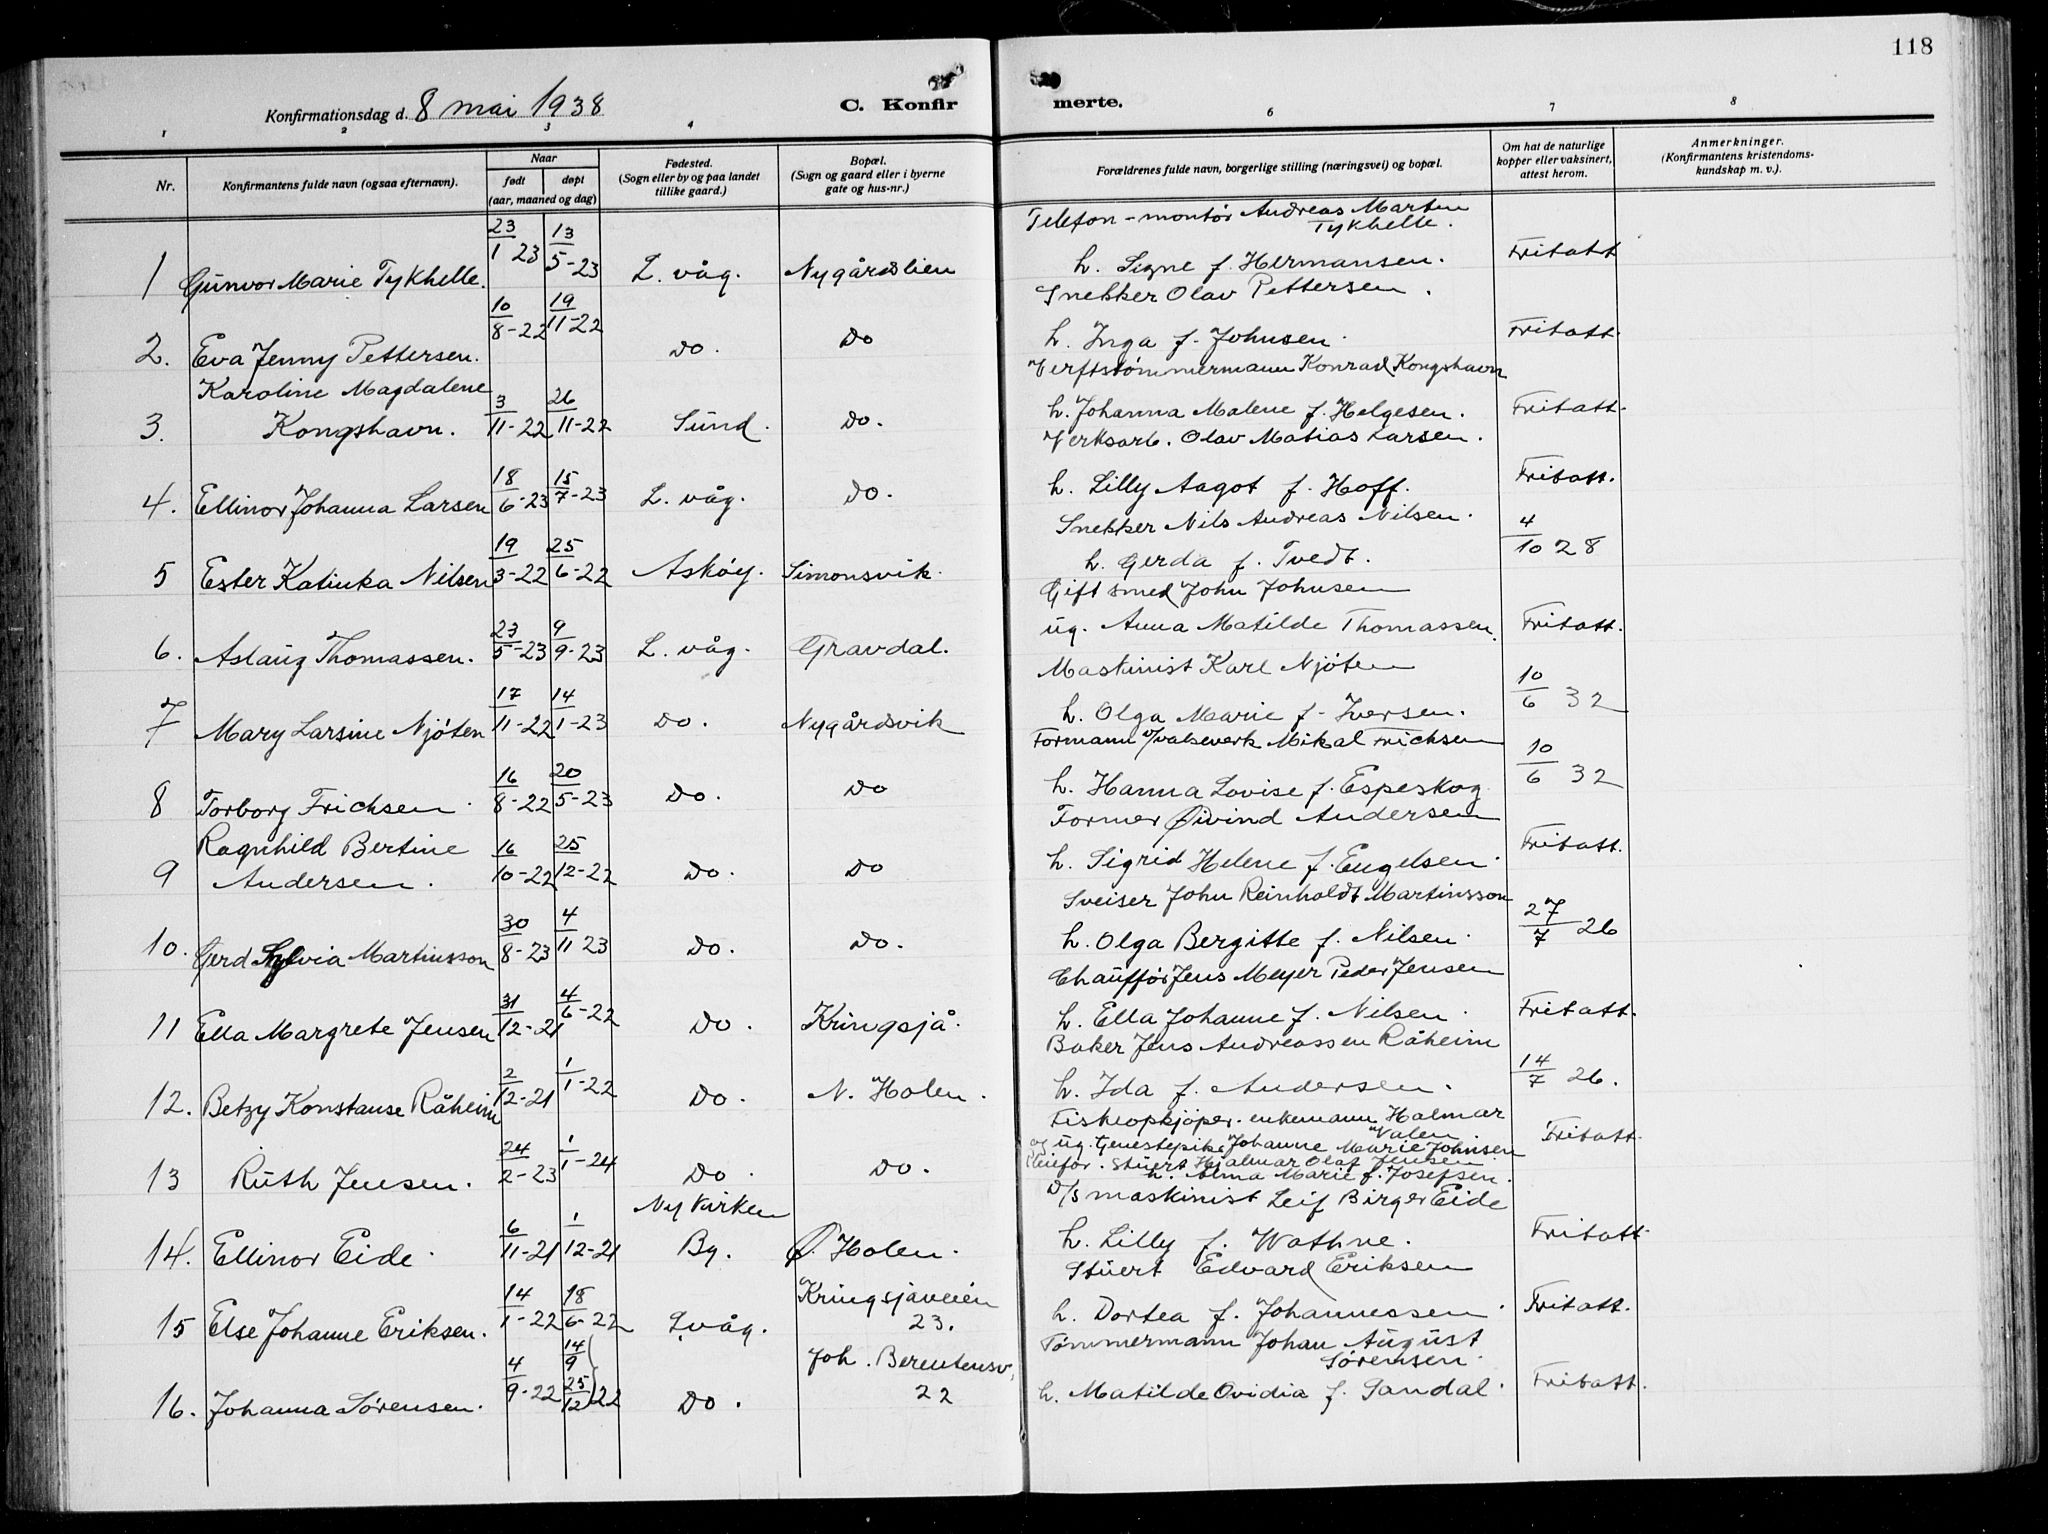 118
Konfirmationsdag d. 8 mai 1938
C. Konfirmerte.
1 2 3 4 6 7 8
Nr.
Konfirmantens fulde navn (ogsaa efternavn).
Naar
født døpt
(aar, maaned og dag)
Fødested.
(Sogn eller by og paa landet
tillike gaard.)
Bopæl.
(Sogn og gaard eller i byerne
gate og hus-nr.)
Forældrenes fulde navn, borgerlige stilling (næringsvei) og bopæl.
Om hat de naturlige
kopper eller vaksinert,
attest herom.
Anmerkninger.
(Konfirmantens kristendoms-
kundskap m. v.).
Telefon-montör Andreas Martin
Tykhelle.
1 Gunvor Marie Tykhelle. 23/1 23 13/5-23 L. våg. Nygårdslien h. Signe f. Hermansen. Fritatt
Snekker Olav Pettersen.
2. Eva Jenny Pettersen. 10/8-22 19/11-22 Do. Do h. Inga f. Johnsen. Fritatt.
Verftstømmermann Konrad Kongshavn
Karoline Magdalene
3. Kongshavn. 3/11-22 26/11-22 Sund. Do. h. Johanna Malene f. Helgesen. Fritatt.
Verksarb. Olav Matias Larsen.
4. Ellinor Johanna Larsen 18/6-23 15/7-23 L. våg. Do. h. Lilly Aagot f. Hoff. Fritatt.
Snekker Nils Andreas Nilsen.
5 Ester Katinka Nilsen 19/3-22 25/6-22 Asköy. Simonsvik. h. Gerda f. Tvedt. 4/10 28
Gift smed John Johnsen
6. Aslaug Thomassen. 23/5-23 9/9-23 L. våg. Gravdal. ug. Anna Matilde Thomassen. Fritatt.
Maskinist Karl Njöten
7 Mary Larsine Njöten 17/11-22 14/1-23 Do. Nygårdsvik h. Olga Marie f. Iversen. 10/6 32
Formann v/valseverk Mikal Frichsen
8 Torborg Frichsen. 16/8-22 20/5-23 Do. Do h. Hanna Lovise f. Espeskog 10/6 32
Former Øivind Andersen
Ragnhild Bertine
9 Andersen. 16/10-22 25/12-22 Do. Do h. Sigrid Helene f. Engelsen. Fritatt.
Sveiser John Reinholdt Martinsson
10. Gerd Sylvia Martinsson 30/8-23 4/11 23 Do. Do. h. Olga Bergitte f. Nilsen. 27/7 26
Chaufför Jens Meyer Peder Jensen
11 Ella Margrete Jensen 31/12-21 4/6-22 Do. Kringsjå. h. Ella Johanne f. Nilsen. Fritatt.
Baker Jens Andreassen Råheim
12. Betzy Konstanse Råheim 2/12-21 1/1-22 Do. N. Holen. h. Ida f. Andersen. 14/7 26.
Fiskeopkjöper. enkemann Halmar
Valen
og ug. tjenestepike Johanne Marie Johnsen Fritatt.
13 Ruth Jensen. 24/2-23 1/1-24 Do. Do. Pleiefor. Stuert Hjalmar Olaf Jensen
h. Alma Marie f. Josefsen.
D/S maskinist Leif Birger Eide
Nykirken
14. Ellinor Eide. 6/11-21 1/12-21 By. Ø. Holen. h. Lilly f. Wathne. Fritatt.
Stuert Edvard Eriksen
Kringsjåveien
15 Else Johanne Eriksen. 14/1-22 18/6-22 Lvåg. 23. h. Dortea f. Johannessen. Fritatt.
Tømmermann Johan August
Sørensen.
Joh. Berentensv.
16. Johanna Sørensen. 4/9-22 14/9 25/12 22 Do. 22 h. Matilde Ovidia f. Sandal. Fritatt.